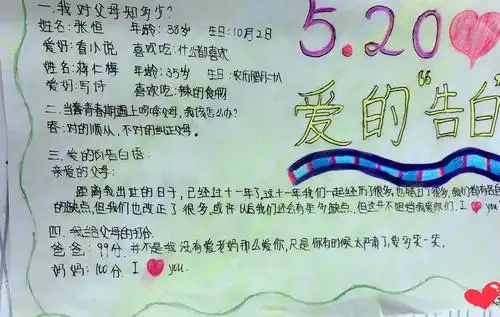 一.我对父母知多少?
姓名:张恒 年龄:38岁 生日:10月2日
爱好:看小说 喜欢吃:什么都喜欢
姓名:蒋仁梅 年龄:35岁 生日:农历腊月二十八
爱好:写诗 喜欢吃:辣的食物
二.当青春期遇上唠叨父母,我该怎么办?
答:对的顺从,不对的纠正父母。
三.爱的告白语:
亲爱的父母:
距离我出世的日子,已经过十一年了,这十一年我们一起经历了很多,也错过了很多,我们都有各自
的缺点,但我们也改正了很多,或许以后我们还会有更多缺点,但这并不阻挡我爱你们. I you
四.我给父母的打分
爸爸:99分.并不是我没有爱老妈那么爱你,只是你有的时候太严肃了,要多笑一笑.
妈妈:100分. I you.
5.20
爱的"告白"